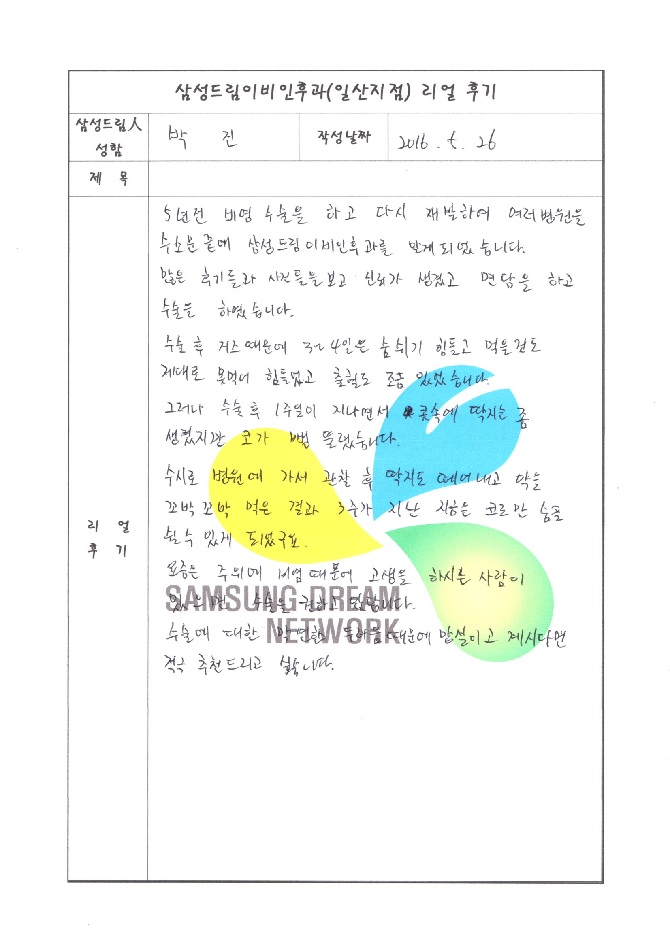 삼성드림이비인후과(일산지점) 리얼 후기
삼성드림人
성함
박 진
작성날짜
2016. 5. 26
제 목
리 얼
후 기
5년전 비염 수술을 하고 다시 재발하여 여러병원을
수소문끝에 삼성드림이비인후과를 알게되었습니다.
많은 후기들과 사진들을보고 신뢰가 생겼고 면담을 하고
수술을 하였습니다.
수술 후 거즈때문에 3~4일은 숨쉬기 힘들고 먹을것도
제대로 못먹어 힘들었고 출혈도 조금 있었습니다.
그러나 수술후 1주일이 지나면서 콧속에 딱지는 좀
생겼지만 코가 뻥 뚫렸습니다.
수시로 병원에 가서 관찰 후 딱지도 떼어내고 약을
꼬박꼬박 먹은 결과 3주가 지난 지금은 코로만 숨을
쉴수 있게 되었구요.
요즘은 주위에 비염때문에 고생을 하시는 사람이
있으면 수술을 권하고 있습니다.
수술에 대한 막연한 두려움때문에 망설이고 계시다면
적극 추천드리고 싶습니다.
SAMSUNG DREAM
NETWORK